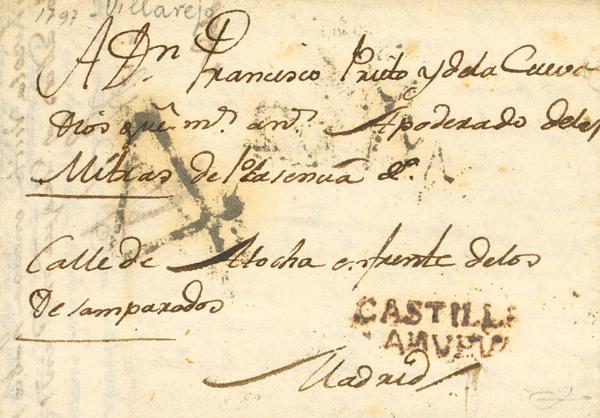 1797 - Villarejo
A Dn Francisco Prieto y de la Cueva
Dios gue ms. ans. Apoderado delas
Mitras de Plasencia &a.
4
Calle de Atocha enfrente delos
Desamparados
CASTILLA
LA NUEVA
Madrid